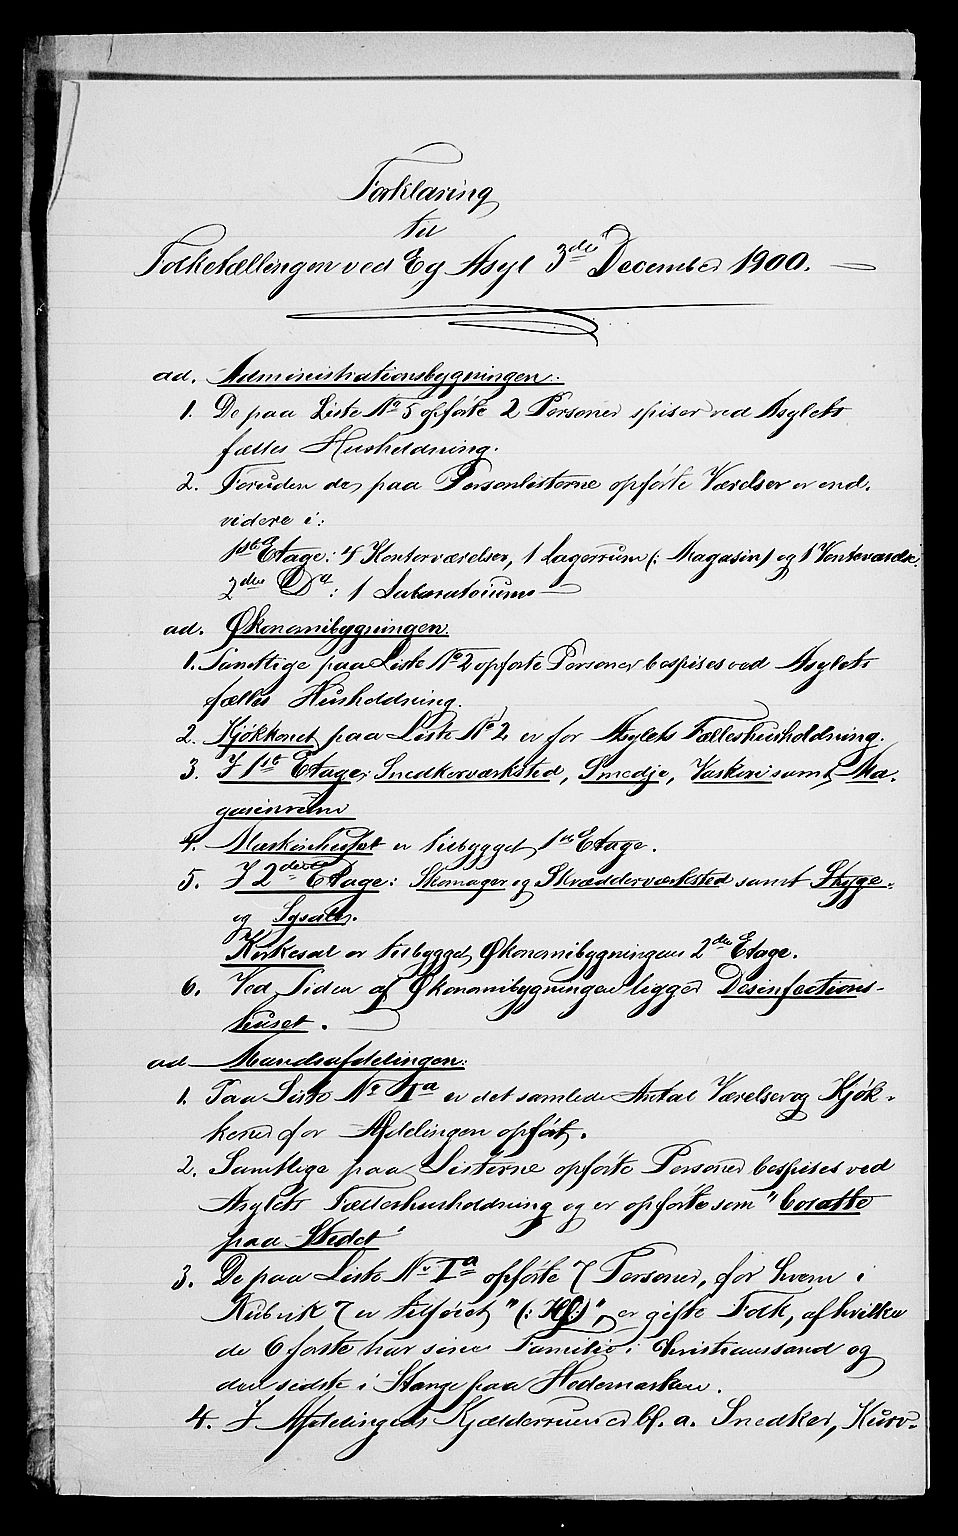 Forklaring
til
Folketællingen ved Eg Asyl 3die December 1900.
ad. Administrationsbygningen.
1. De paa Liste No 5 opførte 2 Personer spiser ved Asylets
fælles Husholdning.
2. Foruden de paa Personlisterne opførte Værelser er end-
videre i:
1ste Etage: 4 Kontorværelser, 1 Lagerrum (: Magasin) og 1 Venteværelse.
2den Do : 1 Laboratorium
ad. Økonomibygningen.
1. Samtlige paa Liste No 2 opførte Personer bespises ved Asylets
fælles Husholdning.
2. Kjøkkenet paa Liste No 2 er for Asylets Fælleshusholdning.
3. I 1ste Etage: Snedkerværksted, Smedje, Vaskeri samt Ma-
gasinrum
4. Maskinhuset er tilbygget 1ste Etage.
5. I 2den Etage: Skomager og Skrædderværksted samt Stryge-
og Sysal.
Kirkesal er tilbygget Økonomibygningens 2den Etage.
6. Ved Siden af Økonomibygningen ligger Desinfections-
huset.
ad Mandsafdelingen:
1. Paa Liste No Ia er det samlede Antal Værelser og Kjøk-
kener for Afdelingen opført.
2. Samtlige paa Listerne opførte Personer bespises ved
Asylets Fælleshusholdning og er opførte som "bosatte
paa Stedet"
3. De paa Liste No Ia opførte 7 Personer, for hvem i
Rubrik 7 er tilføiet "(: Hf:)", er gifte Folk, af hvilke
de 6 første har sine Familie i Christianssand og
den sidste i Stange paa Hedemarken.
4. I Afdelingens Kjælderrum er bl. a. Snedker, Kurv-